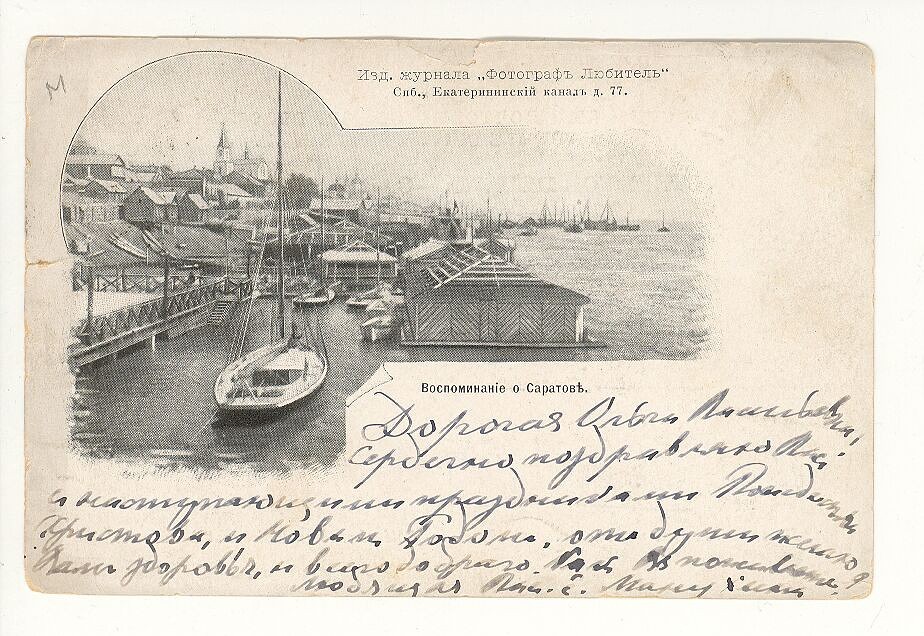 М
Изд. журнала „Фотографъ Любитель“
Спб., Екатерининскій каналъ д. 77.
Воспоминаніе о Саратовѣ.
Дорогая Ольга
Сердечно поздравляю Вас
с наступающими праздниками
Христова, и Новым Годом, от души желаю
Вам здоровья, и всего доброго. Как Вы поживаете?
Любящая Вас